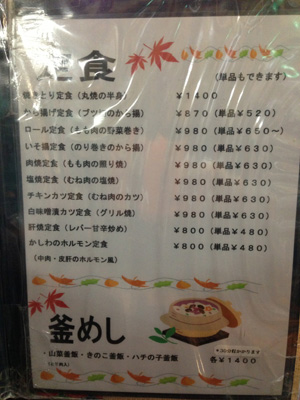 定食
(単品もできます)
焼きとり定食(丸焼の半身) ¥1400
から揚げ定食(ブツ切のから揚) ¥870(単品¥520)
ロール定食(もも肉の野菜巻き) ¥980(単品¥650~)
いそ揚定食(のり巻きのから揚) ¥980(単品¥630)
肉焼定食(もも肉の照り焼) ¥980(単品¥630)
塩焼定食(むね肉の塩焼) ¥980(単品¥630)
チキンカツ定食(むね肉のカツ) ¥980(単品¥630)
白味噌漬カツ定食(グリル焼) ¥980(単品¥630)
肝焼定食(レバー甘辛炒め) ¥800(単品¥480)
かしわのホルモン定食 ¥800(単品¥480)
(中肉・皮肝のホルモン風)
釜めし
・山菜釜飯・きのこ釜飯・ハチの子釜飯
*30分位かかります
各¥1400